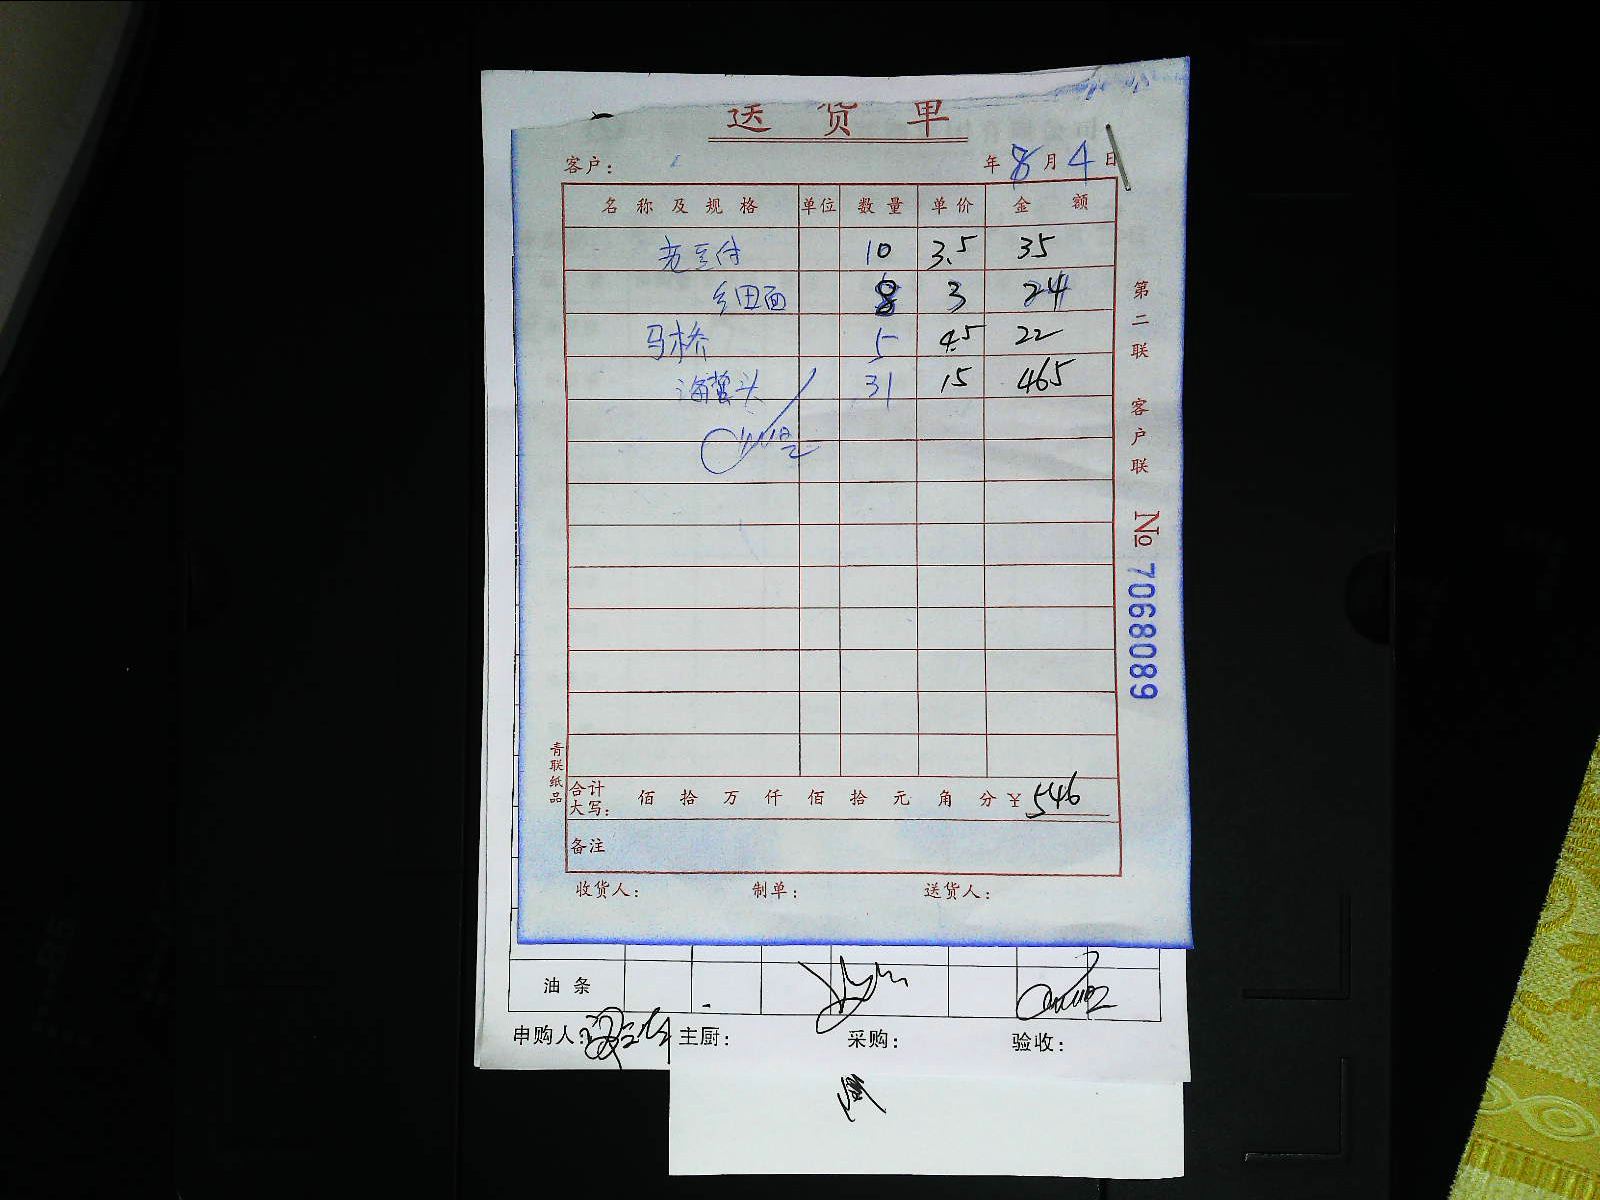 送货单
客户： 年8月4日
名称及规格 单位 数量 单价 金额
老豆付 10 3.5 35
乡田面 8 3 24
马桥 5 4.5 22
海蜇头 31 15 465
合计大写： 佰拾万仟佰拾元角分¥546
备注
收货人： 制单： 送货人：
第二联 客户联 № 7068089
青联纸品
油条
申购人： 主厨： 采购： 验收：